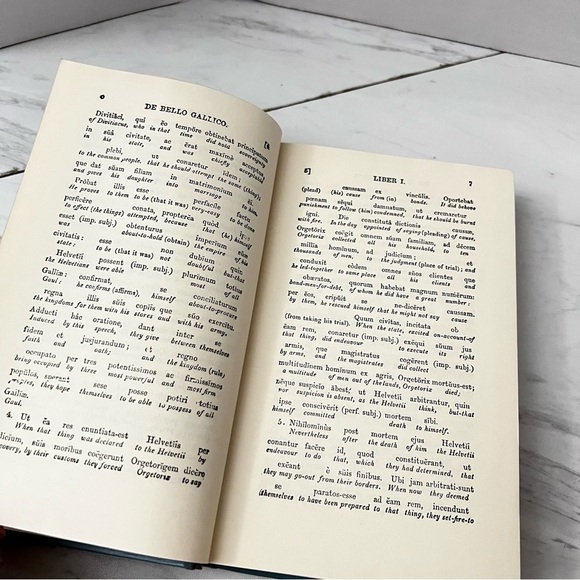 6
DE BELLO GALLICO.
Divitiăci, qui ĕo tempŏre obtinebat principatum
of Divitiacus, who in that time did hold sovereignty
in sŭâ civitate, ac ĕrat maximè acceptus
in his state, and was chiefly acceptable
plebi, ut conaretur ĭdem:
to the common people, that he should attempt the same (they);
que dat sŭam filiam in matrimonium ĕi.
and gives his daughter into marriage
Prŏbat illis esse perfacile
He proves to them to be (that it was) very-easy to be done
conata, propterĕa quòd
to effect (the things) attempted, because that (he) himself
esset (imp. subj.) obtenturus imperium sŭæ
was about-to-hold (obtain) the empire of his
civitatis: esse non dubium quin
state: to be (that it was) not doubtful but that
Helvetii possent (imp. subj.) plurimum totius
the Helvetians were able
Galliæ: confirmat, se conciliaturum
Gaul: he confirms (affirms), himself about-to-procure
regna illis sŭis copiis que sŭo exercĭtu.
the kingdoms for them with his stores and with his army.
Adducti hâc oratione, dant inter se
Induced by this speech, they give between themselves
fidem et jusjurandum; et regno
faith and oath; and the kingdom (rule)
occupato per tres potentissimos ac firmissimos
being occupied by three most powerful and most firm
popŭlos, sperant sese posse potiri totius
they hope themselves to be able to possess of all
Galliæ.
Gaul.
4. Ut ĕa res enuntiata-est Helvetĭis per
When that thing was declared to the Helvetii by
sŭis moribus coëgerunt Orgetorigem dicĕre
by their customs they forced Orgetorix to say
5]
LIBER I.
7
causam ex vincŭlis. Oportebat
(plead) (his) cause from (in) bonds. It did behove
pœnam sĕqui damnatum, ut cremaretur
punishment to follow (him) condemned, that he should be burned
igni. Die constitutâ dictionis causæ,
with fire. In the day appointed of saying (pleading) of cause,
Orgetŏrix coëgit omnem sŭam familiam, ad dĕcem
Orgetorix collected all his household, to ten
millia homĭnum, ad judicium; et
thousands of men, to the judgment (place of trial); and
conduxit ĕòdem omnes sŭos clientes que
he led-together to same place all his clients and
obæratos, quorum habebat magnum numĕrum:
bond-men-for-debt, of whom he did have a great number:
per ĕos, eripŭit se ne-dicĕret causam.
by them, he rescued himself that he might not say cause
Quum civĭtas, incitata ob
(from taking his trial). When the state, excited on-account-of
ĕam rem, conaretur (imp. subj.) exĕqui sŭum jus
that thing, did endeavour to execute its right
armis, que magistratus cogĕrent (imp. subj.)
by arms, and the magistrates did collect
multitudĭnem homĭnum ex agris, Orgetŏrix mortŭus-est;
a multitude of men out of the lands, Orgetorix died;
nĕque suspicio ăbest, ut Helvetii arbitrantur, quin
nor suspicion is absent, as the Helvetii think, but-that
ipse consciverit (perf. subj.) mortem sibi.
himself committed death to himself.
5. Nihilomĭnus post mortem ejus Helvetii
Nevertheless after the death of him the Helvetii
conantur facĕre id, quod constituĕrant, ut
endeavour to do that, which they had determined, that
exĕant è sŭis finĭbus. Ubi jam arbitrati-sunt
they may go-out from their borders. When now they deemed
se paratos-esse ad ĕam rem, incendunt
themselves to have been prepared to that thing, they set-fire-to